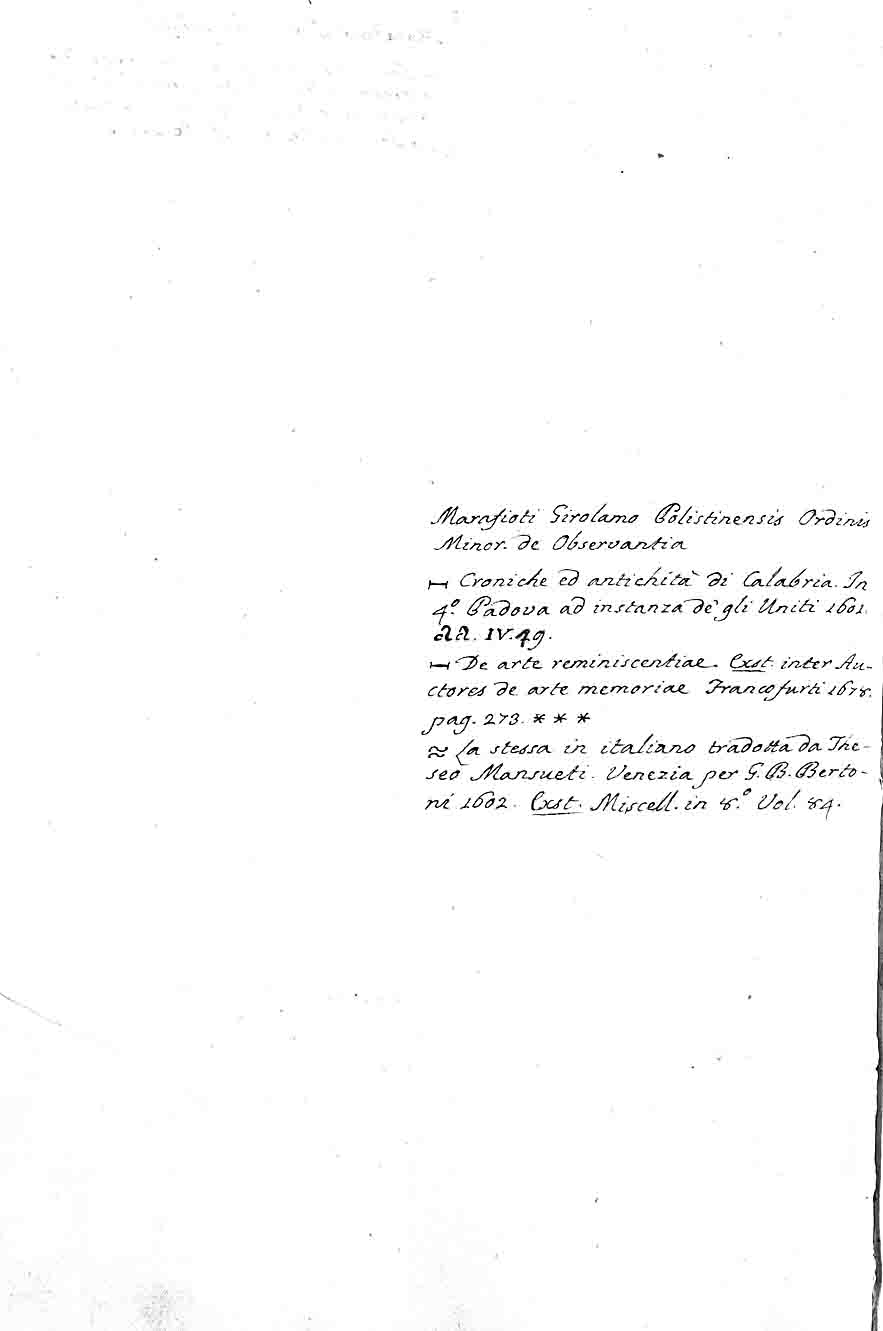 Marafioti Girolamo Polistinensis Ordinis
Minor. de Observantia
⊢ Croniche ed antichità di Calabria. In
4.º Padova ad instanza de' gli Uniti 1601.
aa. IV. 49.
⊢ De arte reminiscentiae. Exst. inter Au-
ctores de arte memoriae Francofurti 1678.
pag. 273. * * *
≈ La stessa in italiano tradotta da The-
seo Mansueti. Venezia per G. B. Berto-
ni 1602. Exst. Miscell. in 8.º Vol. 84.